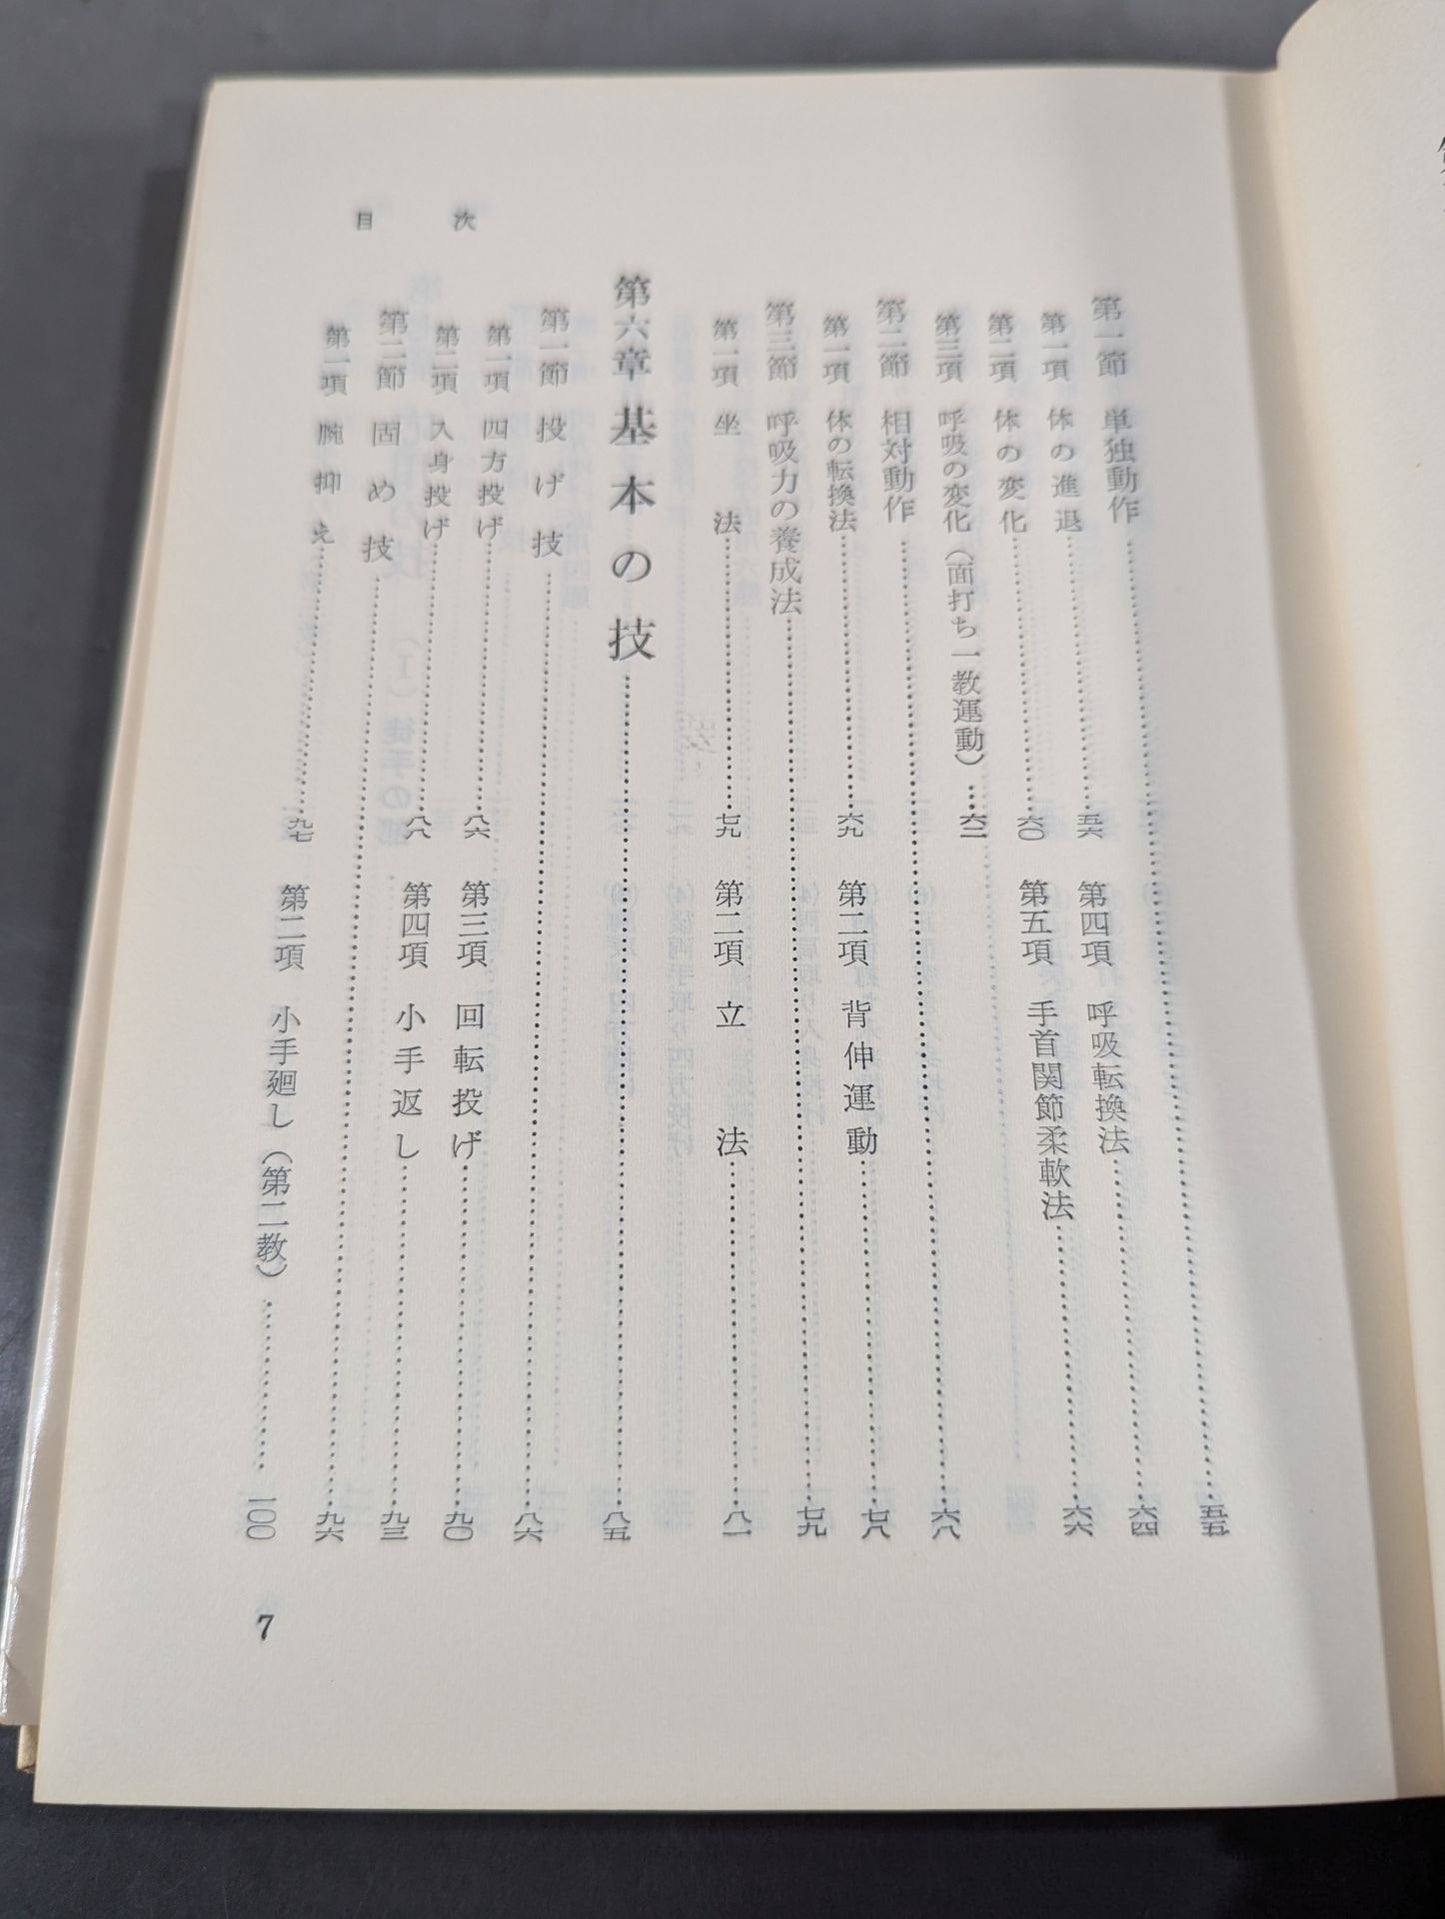 目次
第一節 単独動作……五五
第一項 体の進退……五六
第四項 呼吸転換法……六四
第二項 体の変化……六〇
第五項 手首関節柔軟法……六六
第三項 呼吸の変化（面打ち一教運動）…六二
第二節 相対動作……六八
第一項 体の転換法……六九
第二項 背伸運動……七八
第三節 呼吸力の養成法……七九
第一項 坐法……七九
第二項 立法……八一
第六章 基本の技……八五
第一節 投げ技……八六
第一項 四方投げ……八六
第三項 回転投げ……九〇
第二項 入身投げ……八八
第四項 小手返し……九三
第二節 固め技……九六
第一項 腕抑え……九七
第二項 小手廻し（第二教）……一〇〇
7